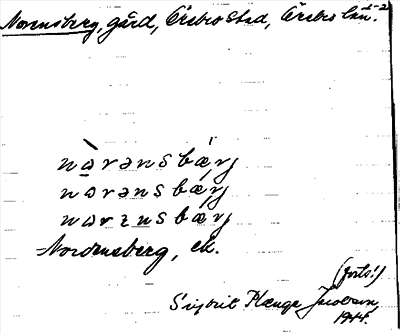 Norensberg, gård, Örebro stad, Örebro län.
nòrənsbærj
norənsbærj
norɛnsbærj
Norensberg, ek.
(forts!)
Sigbrit Plænge Jacobson
1944.